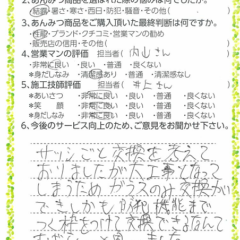 2. あんみつ商品を選ばれた際の悩みは何でしたか。
結露・暑さ・寒さ・西日・防犯・騒音・その他(　)
3. あんみつ商品をご購入頂いた最終判断は何ですか。
性能・ブランド・クチコミ・営業マンの勧め
販売店の信用・その他(　)
4. 営業マンの評価　担当者(内山さん)
*非常に良い・良い・普通・良くない
*身だしなみ　清潔感あり・普通・清潔感なし
5. 施工技師評価　担当者(井上さん)
*あいさつ　・非常に良い・良い・普通・良くない
*笑　顔　・非常に良い・良い・普通・良くない
*身だしなみ・非常に良い・良い・普通・良くない
6. 今後のサービス向上のため、ご意見をお聞かせ下さい。
サッシごと交換を考えて
おりましたが大工事なって
しまうためガラスのみ交換が
できしかも防犯機能まで
つく枠をつけて交換できるなんて